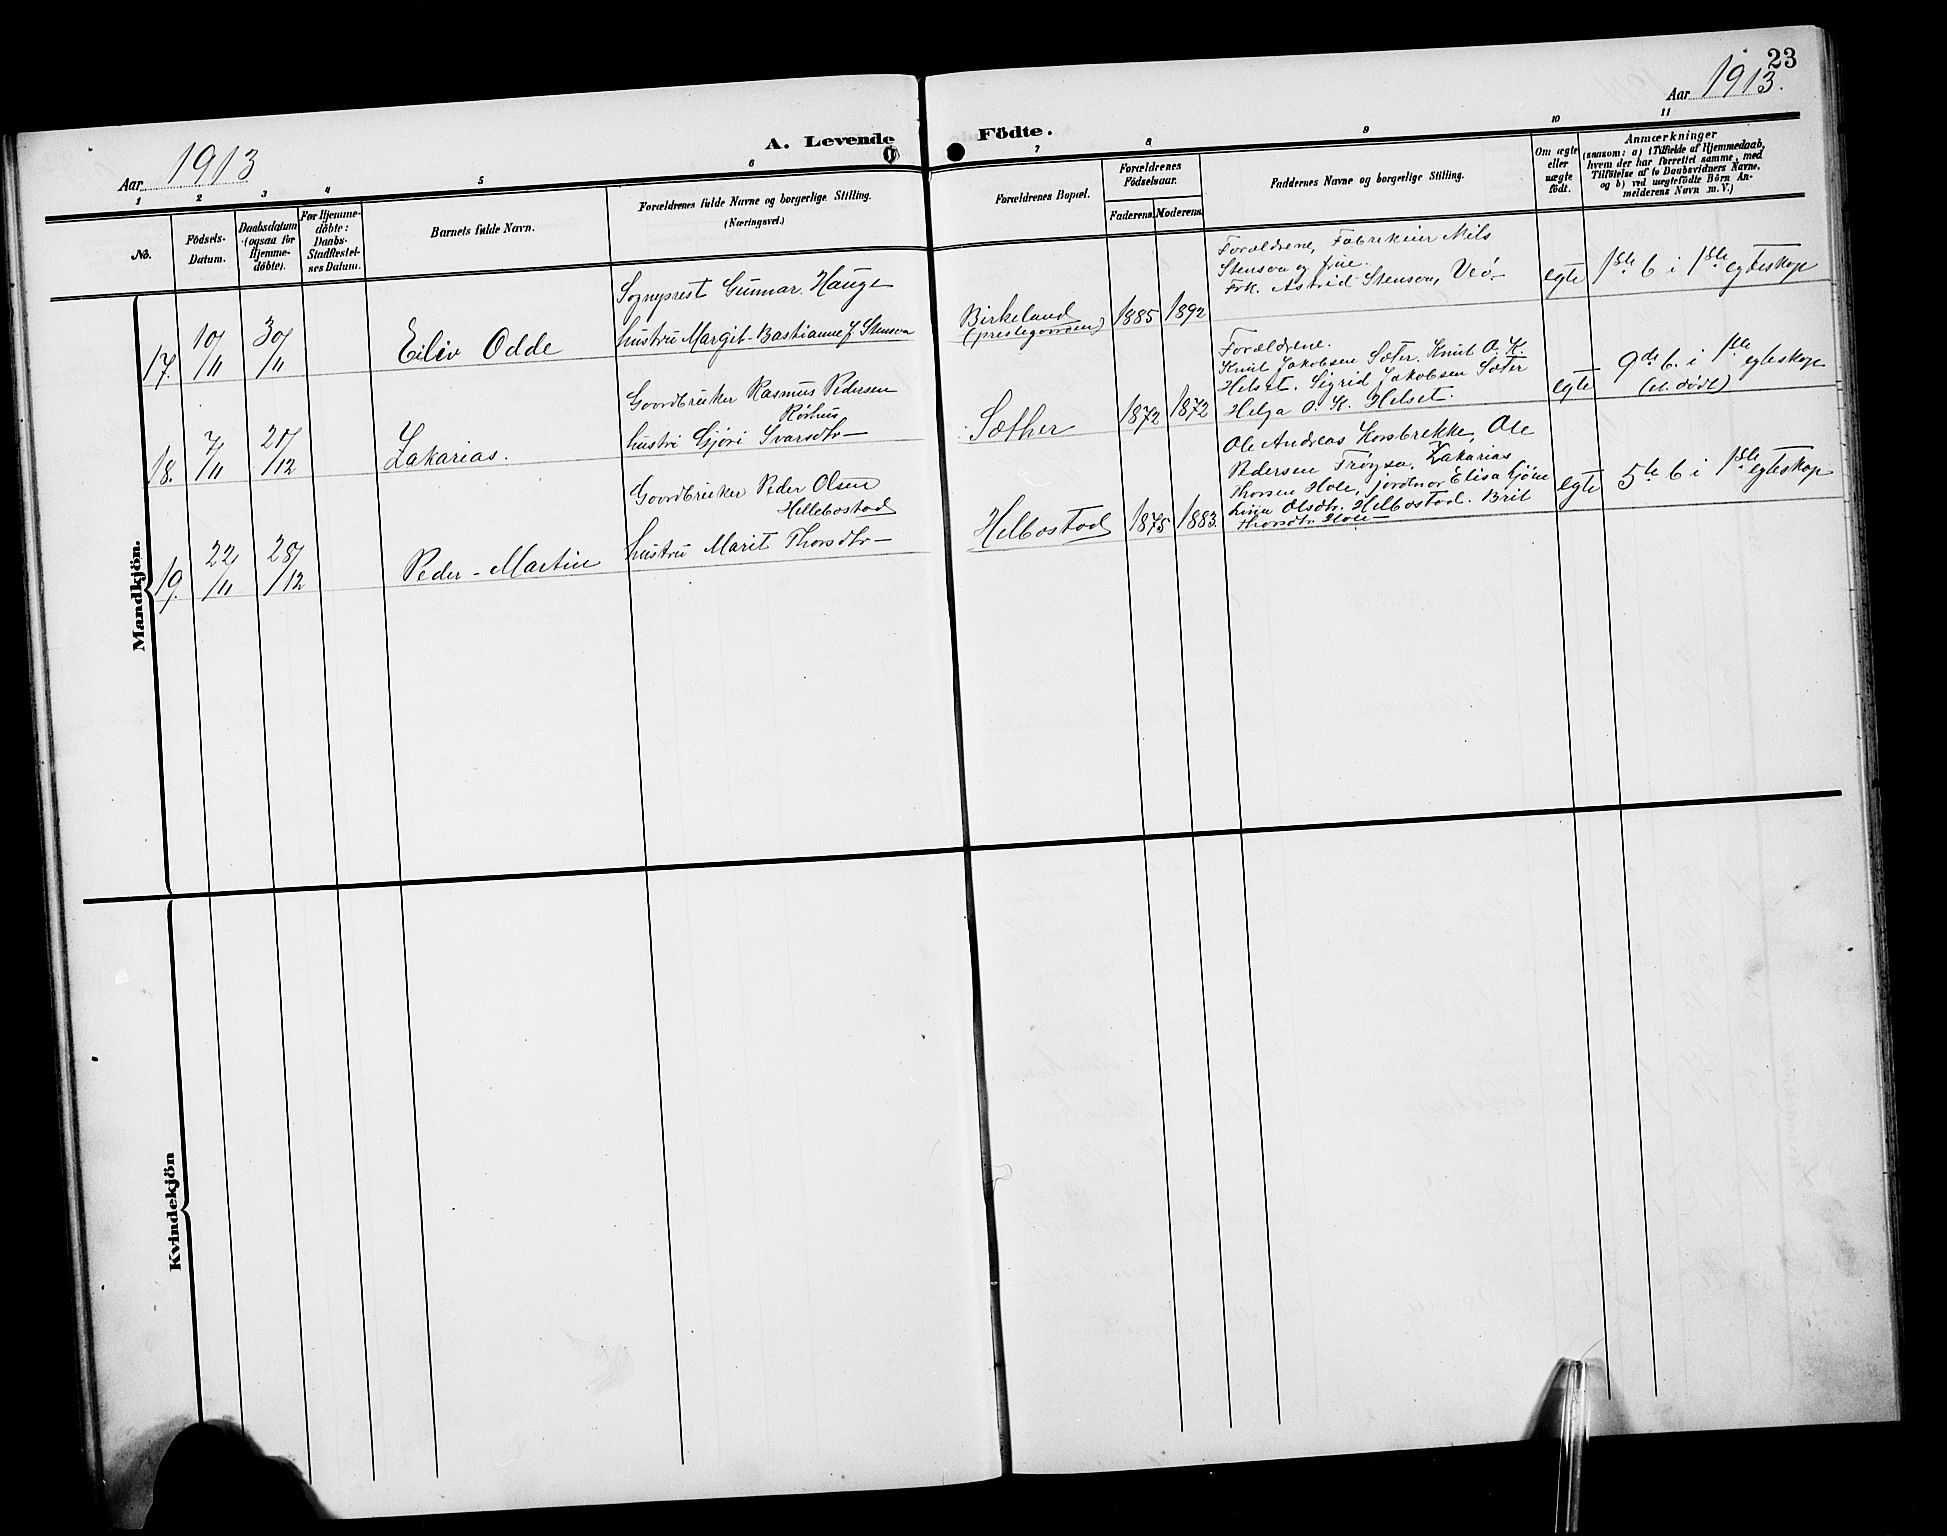 23
Aar 1913
A. Levende Födte.
Aar 1913.
1 2 3 4 5 6 7 8 9 10 11
No.
Födsels-
Datum.
Daabsdatum
(ogsaa for
Hjemme-
döbte).
For Hjemme-
döbte:
Daabs-
Stadfæstel-
ses Datum.
Barnets fulde Navn.
Forældrenes fulde Navne og borgerlige Stilling.
(Næringsvei.)
Forældrenes Bopæl.
Forældrenes
Födselsaar.
Faderens. Moderens.
Faddernes Navne og borgerlige Stilling.
Om ægte
eller
uægte
födt.
Anmærkninger
(saasom: a) i Tilfælde af Hjemmedaab,
hvem der har forrettet samme, med
Tilföielse af to Daabsvidners Navne,
og b) ved uægtefödte Börn An-
melderens Navn m. V.)
Mandkjön.
17. 10/11 30/11 Eiliv Odde
Sogneprest Gunnar Hauge
hustru Margit Bastianne J Stenson
Birkeland
(prestegaarden)
1885 1892
Forældrene, Fabrikeier Nils
Stenson og frue.
Frk. Astrid Stenson, Veö
egte
1ste b i 1ste egteskap
18. 7/11 21/12 Zakarias.
Gaardbruker Rasmus Pedersen
Rörhus
hustru Gjöri Ivarsdtr
Sæther
1872 1872
Forældrene.
Knut Jakobsen Sæter. Knut O. K.
Helset. Sigrid Jakobsen Sæter
Helga O. K. Helset.
egte
9de b. i 1ste egteskap
19. 22/11 28/12 Peder-Martin
Gaardbruker Peder Olsen
Hellebostad
hustru Marit Thorsdtr
Helbostad
1875 1883.
Ole Andreas Korsbrekke, Ole
Pedersen Tröysa, Zakarias
Thorsen Hole, jordmor Elisa
Olsdtr. Helbostad. Brit
Thorsdtr Hole
egte
5te b i 1ste egteskap
Kvindekjön